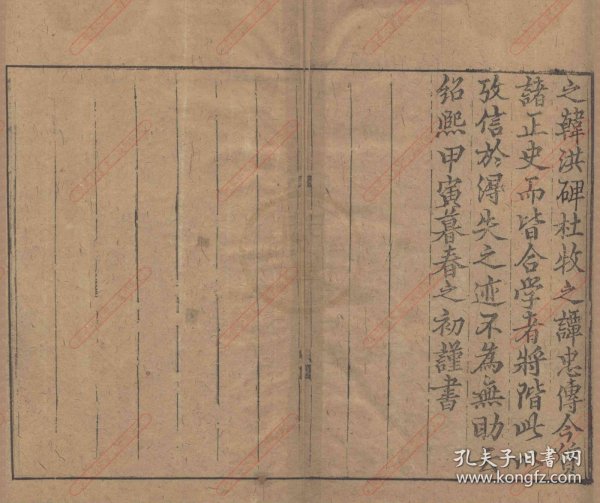 之韓洪碑杜牧之譚忠傳今
諸正史而皆合學者將階此
攷信於淂失之迹不為無助
紹熙甲寅暮春之初謹書
孔夫子旧书网
www.kongfz.com